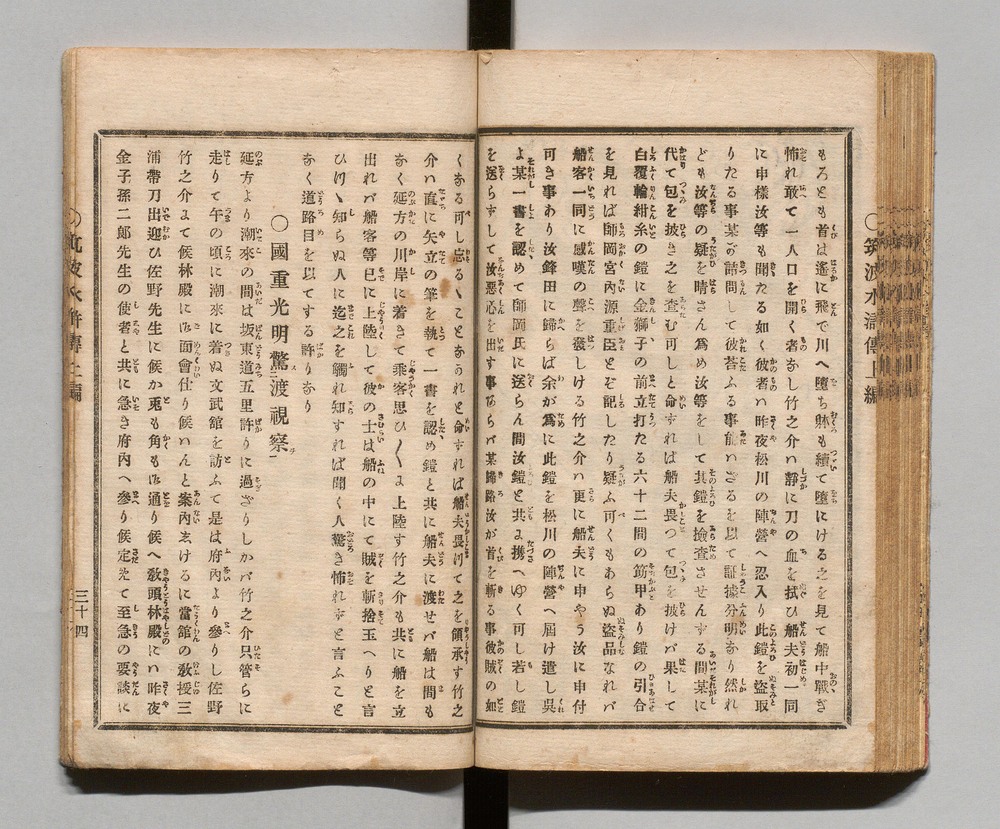 〇筑波水滸傳上編
もろとも首は遙に飛で川へ墮ち躰も續て墮にける之を見て船中戰き
怖れ敢て一人口を開く者なし竹之介ハ靜に刀の血を拭ひ船夫初一同
に申樣汝等も聞たる如く彼者ハ昨夜松川の陣營へ忍入り此鎧を盜取
りたる事某が詰問して彼荅ふる事能ハざるを以て証據分明なり然れ
ども汝等の疑を晴さん爲め汝等をして其鎧を撿査させんする間某に
代て包を披き之を査む可しと命すれば船夫畏つて包を披けバ果して
白覆輪紺糸の鎧に金獅子の前立打たる六十二間の筋甲あり鎧の引合
を見れば師岡宮內源重臣とぞ記したり疑ふ可くもあらぬ盜品なれバ
船客一同に感嘆の聲を發しける竹之介ハ更に船夫に申やう汝に申付
可き事あり汝鉾田に歸らば余が爲に此鎧を松川の陣營へ屆け遣し吳
よ某一書を認めて師岡氏に送らん間汝鎧と共よ携へゆく可し若し鎧
を送らすして汝惡心を出す事あらバ某歸路汝が首を斬る事彼賊の如
くなる可し忘るゝことなかれと命すれば船夫畏けて之を領承す竹之
介ハ直に矢立の筆を執て一書を認め鎧と共に船夫に渡せバ船は間も
なく延方の川岸に着きて乘客思ひ〱よ上陸す竹之介も共に船を立
出れバ船客等已に上陸して彼の士は船の中にて賊を斬捨玉へりと言
ひけゝ知らぬ人に迄之を觸れ知すれば聞く人驚き怖れずと言ふこと
なく道路目を以てする許りなり
〇國重光明驚二渡視察一
延方より潮來の間は坂東道五里許りに過ざりしかバ竹之介只管らに
走りて午の頃に潮來に着ぬ文武館を訪ふて是は府內より參りし佐野
竹之介よて候林殿に御面會仕り候ハんと案內志けるに當館の敎授三
浦帶刀出迎ひ佐野先生に候か兎も角も御通り候へ敎頭林殿にハ昨夜
金子孫二郞先生の使者と共に急き府內へ參り候定めて至急の要談に
〇筑波水滸傳上編
三十四